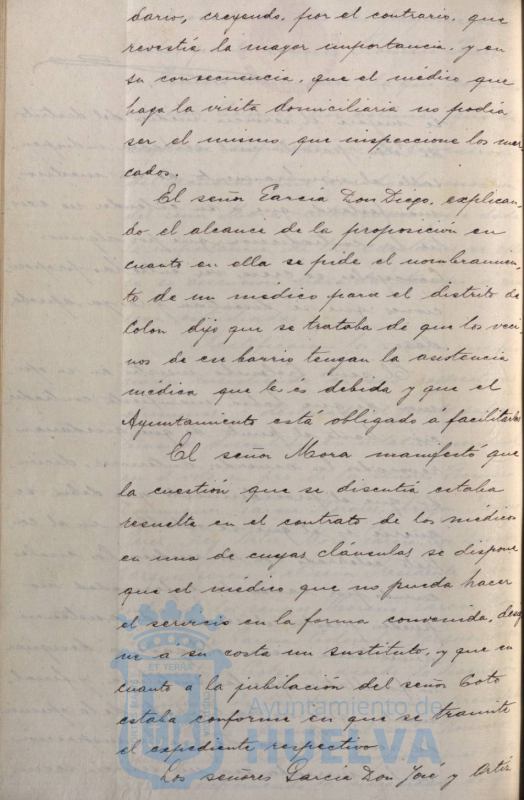 dario, creyendo, por el contrario, que
revestía la mayor importancia, y en
su consecuencia, que el médico que
haga la visita domiciliaria no podía
ser el mismo que inspeccione los mer-
cados.
El señor García Don Diego, explican-
do el alcance de la proposición en
cuanto en ella se pide el nombramien-
to de un médico para el distrito de
Colon dijo que se trataba de que los veci-
nos de ese barrio tengan la asistencia
médica que les és debida y que el
Ayuntamiento está obligado á facilitarles
El señor Mora manifestó que
la cuestión que se discutia estaba
resuelta en el contrato de los médicos
en una de cuyas cláusulas se dispone
que el médico que no pueda hacer
el servicio en la forma convenida, desig
ne á su costa un sustituto, y que en
cuanto á la jubilación del señor Coto
estaba conforme en que se tramite
el expediente respectivo
Los señores García Don José y Ortiz
Ayuntamiento de
HUELVA